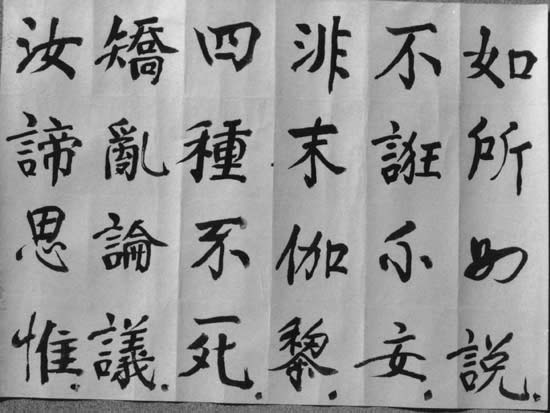 如所如説.
不誑不妄.
非末伽黎.
四種不死.
矯亂論議.
汝諦思惟.